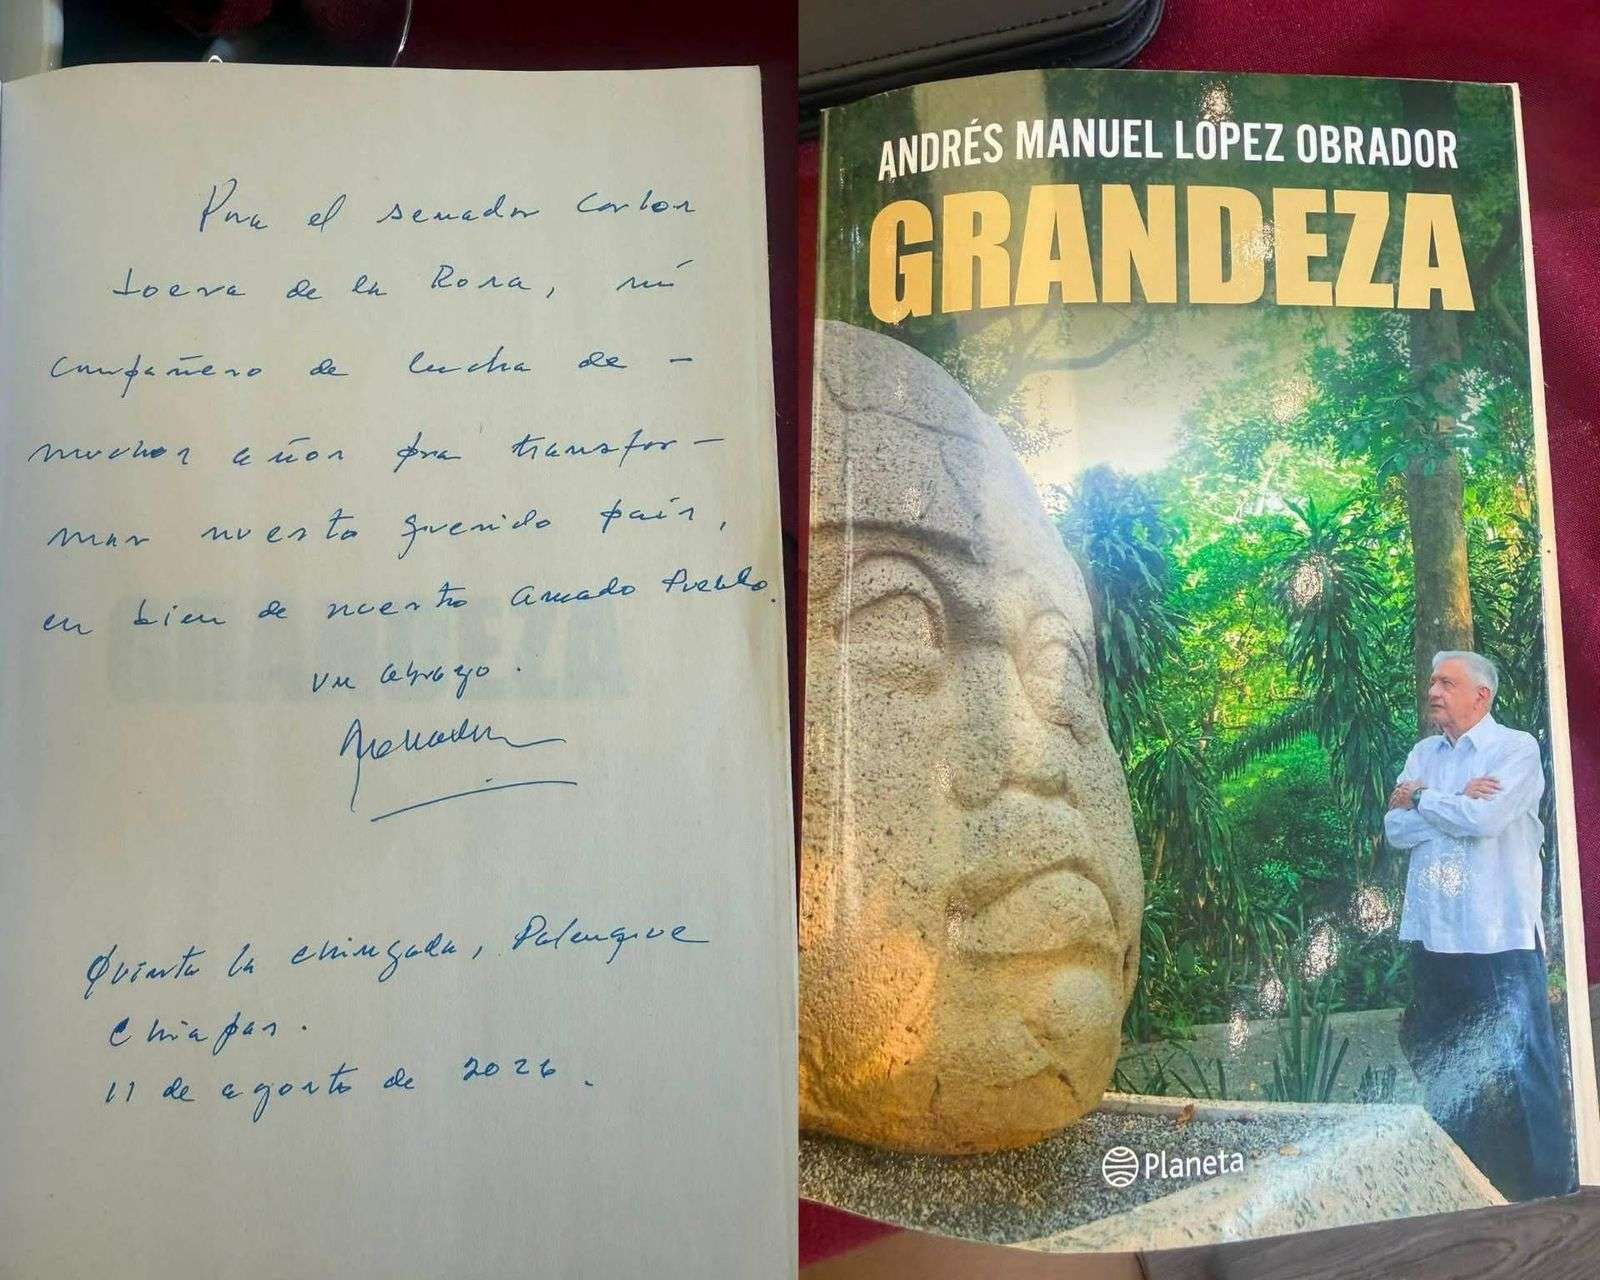 Para el senador Carlos
Loera de la Rosa, mi
compañero de lucha de -
muchos años para transfor-
mar nuestro querido país,
en bien de nuestro amado Pueblo.
un abrazo.
Quinta la chingada, Palenque
Chiapas.
11 de agosto de 2026.
ANDRÉS MANUEL LÓPEZ OBRADOR
GRANDEZA
Planeta